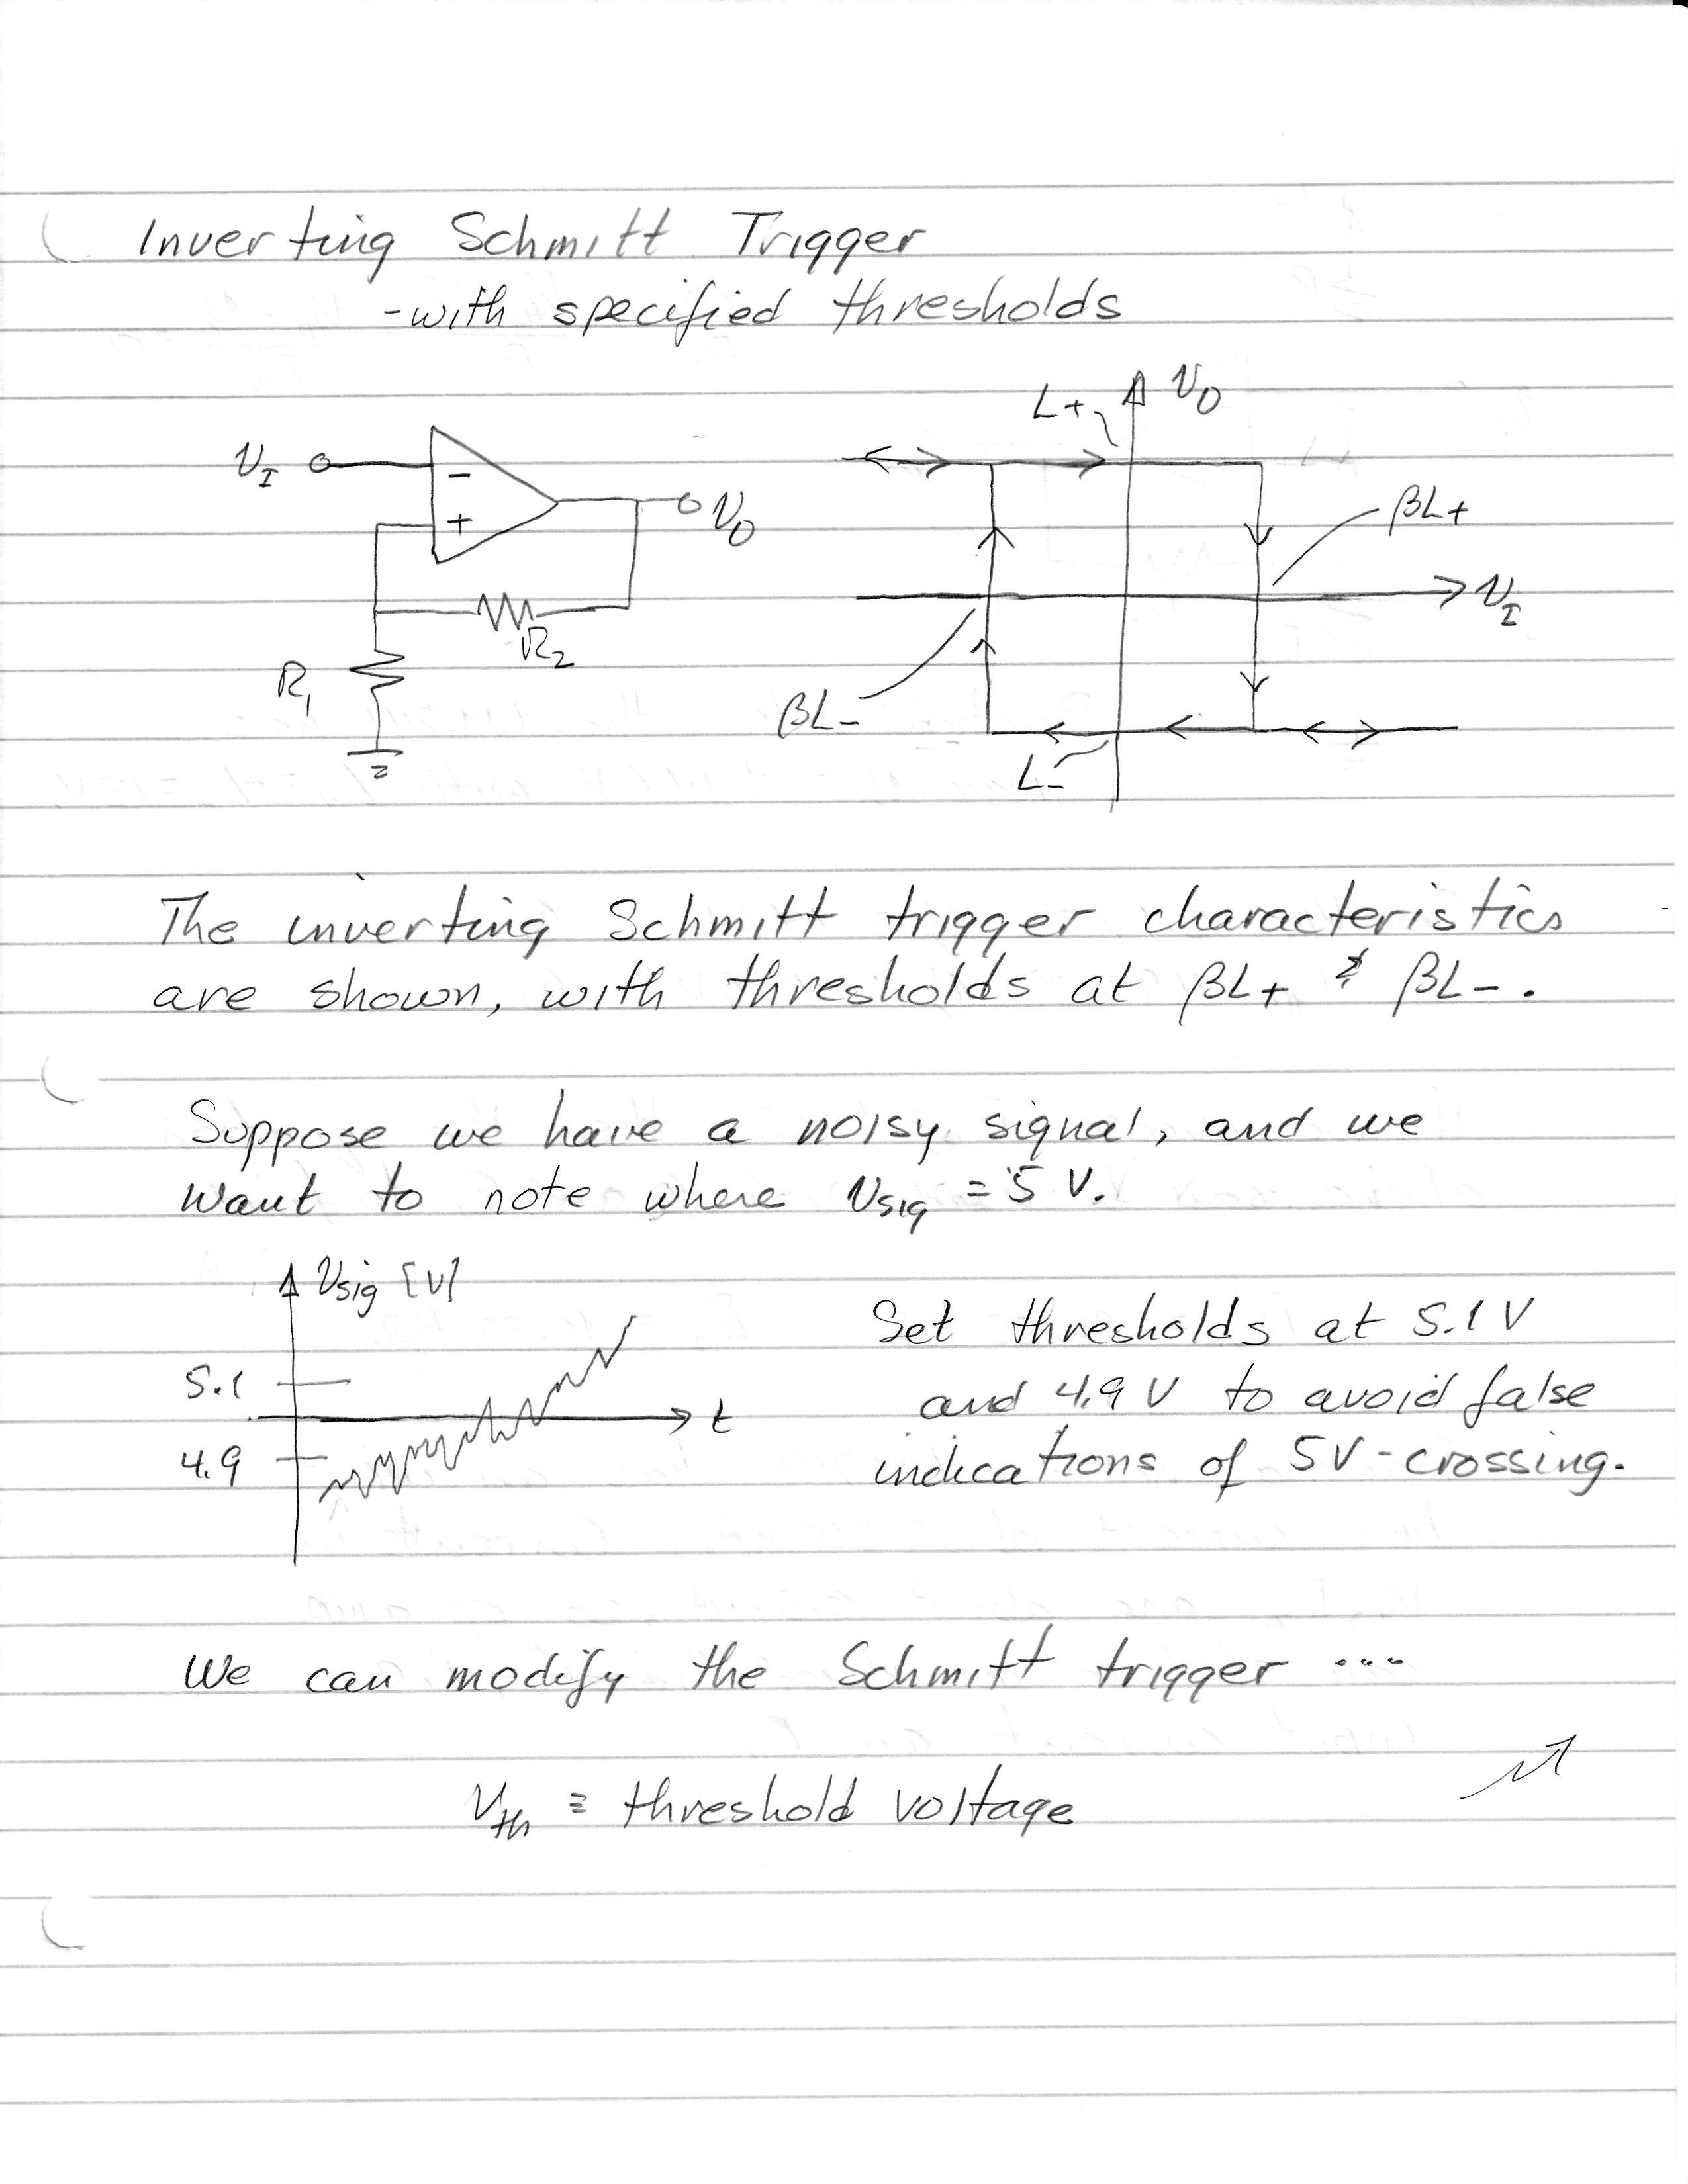 Inverting Schmitt Trigger
-with specified thresholds
L+
v_O
v_I
-
+
v_O
βL+
v_I
R_2
R_1
βL-
L-
The inverting Schmitt trigger characteristics
are shown, with thresholds at βL+ & βL-.
Suppose we have a noisy signal, and we
want to note where v_sig = 5 V.
v_sig [V]
5.1
t
4.9
Set thresholds at 5.1 V
and 4.9 V to avoid false
indications of 5V-crossing.
We can modify the Schmitt trigger ...
V_th ≡ threshold voltage